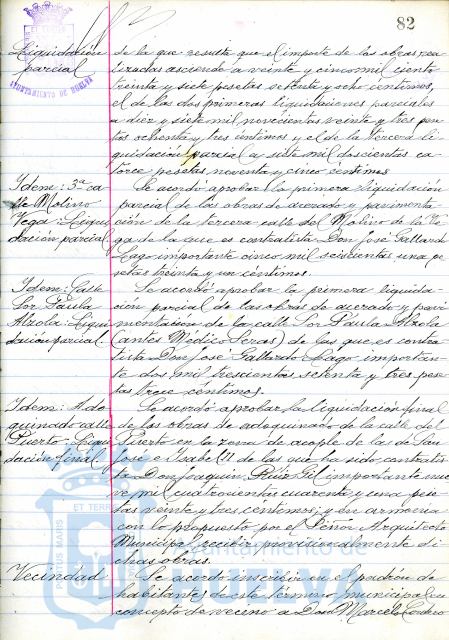 82
AYUNTAMIENTO DE HUELVA
Liquidación
parcial
de la que resulta que el importe de las obras rea-
lizadas asciende a veinte y cinco mil ciento
treinta y siete pesetas setenta y ocho centimos,
el de las dos primeras liquidaciones parciales
a diez y siete mil novecientos veinte y tres pese-
tas ochenta y tres centimos y el de la tercera li-
quidación parcial a siete mil doscientas ca-
torce pesetas noventa y cinco centimos.
Idem: 3ª ca-
lle Molino
Vega: Liqui-
dación parcial
Se acordó aprobar la primera liquidación
parcial de las obras de acerado y pavimenta-
ción de la tercera calle del Molino de la Ve-
ga de la que es contratista Don José Gallardo
Lago importante cinco mil seiscientas una pe-
setas treinta y un céntimos.
Idem: Calle
Sor Paula
Alzola: Liqui-
dación parcial.
Se acordó aprobar la primera liquida-
ción parcial de las obras de acerado y pavi-
mentación de la calle Sor Paula Alzola
(antes Médico Seras) de las que es contra-
tista Don José Gallardo Lago importan-
te dos mil trescientas setenta y tres pese-
tas trece céntimos.
Idem: Ado-
quinado calle
Puerto: Liqui-
dación final
Se acordó aprobar la liquidación final
de las obras de adoquinado de la calle del
Puerto en la zona de acople de la de San
José e Isabel II de las que ha sido contratis-
ta Don Joaquin Ruiz Gil importante nue-
ve mil cuatrocientas cuarenta y una pese-
tas veinte y tres centimos; y en armonia
con lo propuesto por el Señor Arquitecto
Municipal recibir provisionalmente di-
chas obras.
Vecindad
Se acordó inscribir en el padrón de
habitantes de este término municipal en
concepto de vecino a Don Marcelo Cordero
PORTUS MARIS ET TERRAE
Ayuntamiento de
HUELVA